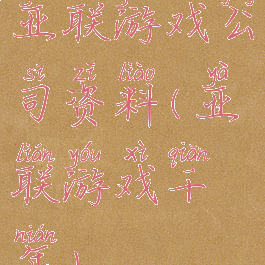 亚联游戏公
sī zī liào yà
司资料(亚
lián yóu xì qiān
联游戏千
nián
年)